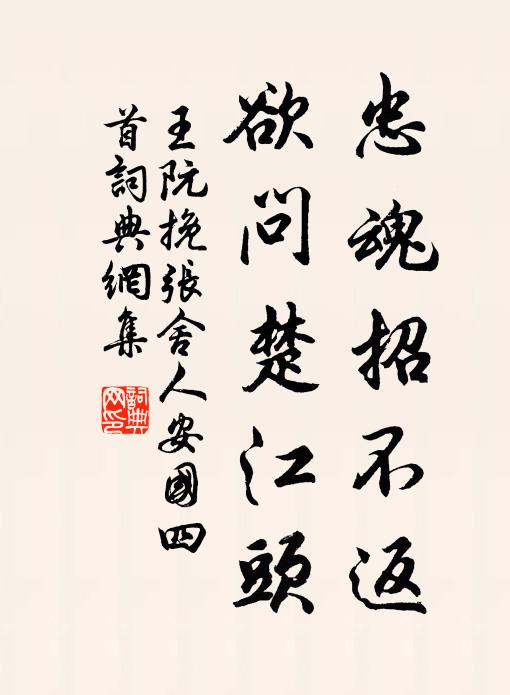 忠魂招不返
欲問楚江頭
王阮挽張舍人安國四
首詞典網集
詞典
网印